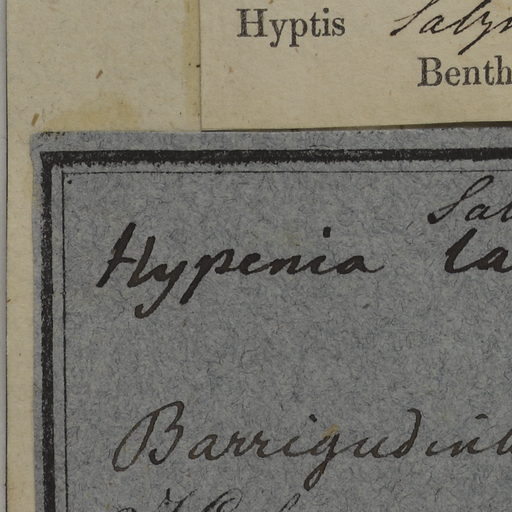 Hyptis Salzm
Benth
Sal
Hypenia la
Barrigudinh